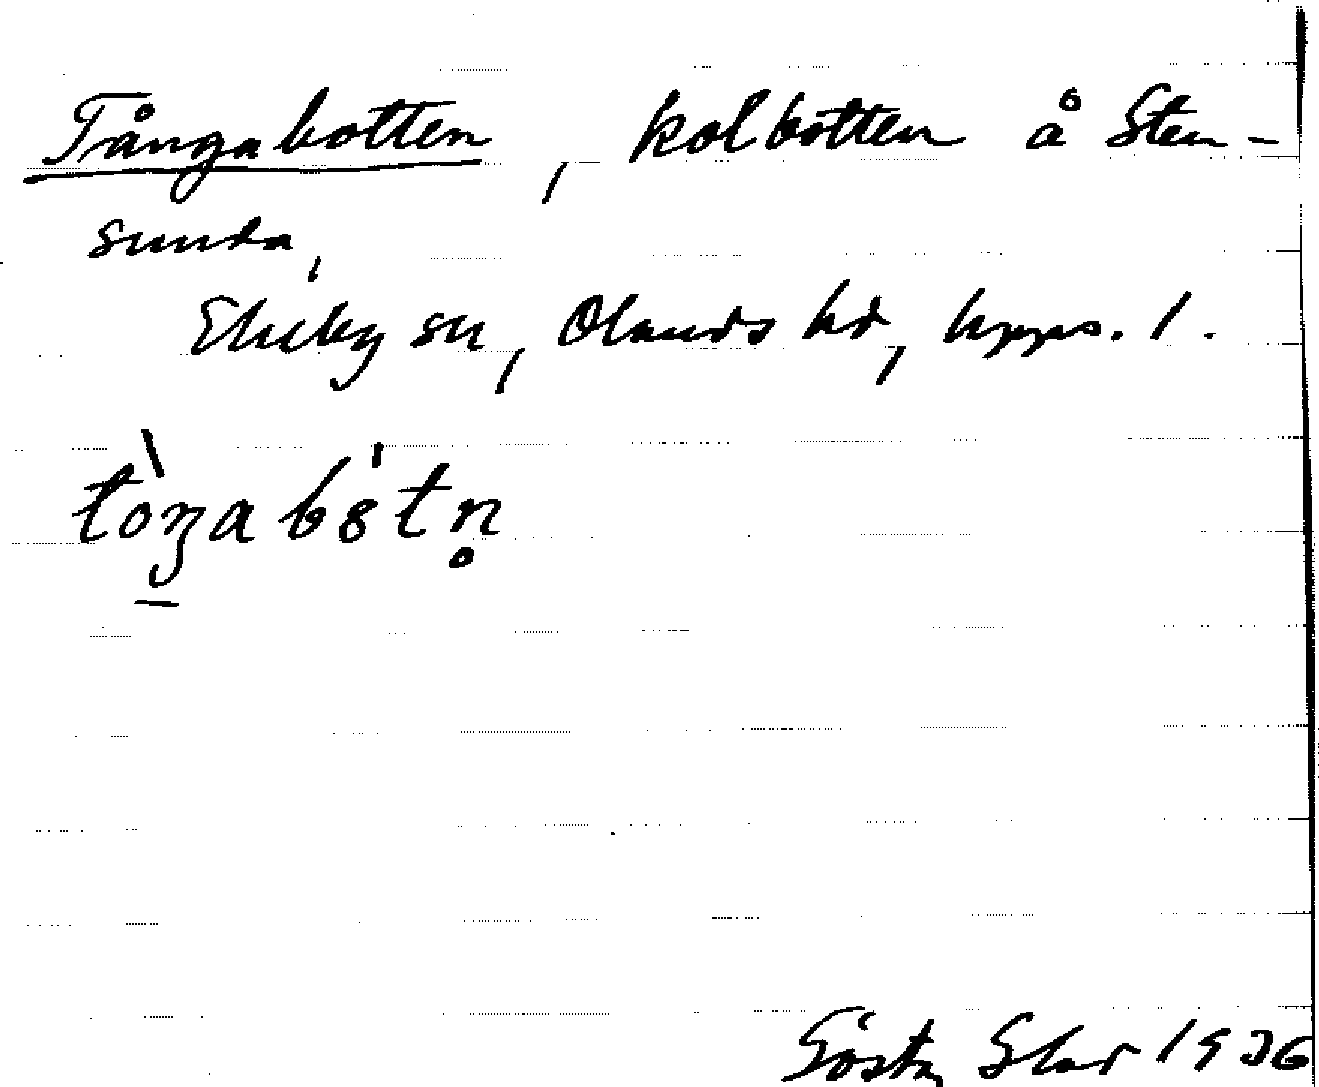 Tångabotten, kolbotten å Sten-
sunda,
Ekeby sn, Olands hd, Upps. l.
tòŋabȯtn̥
Gösta 1936